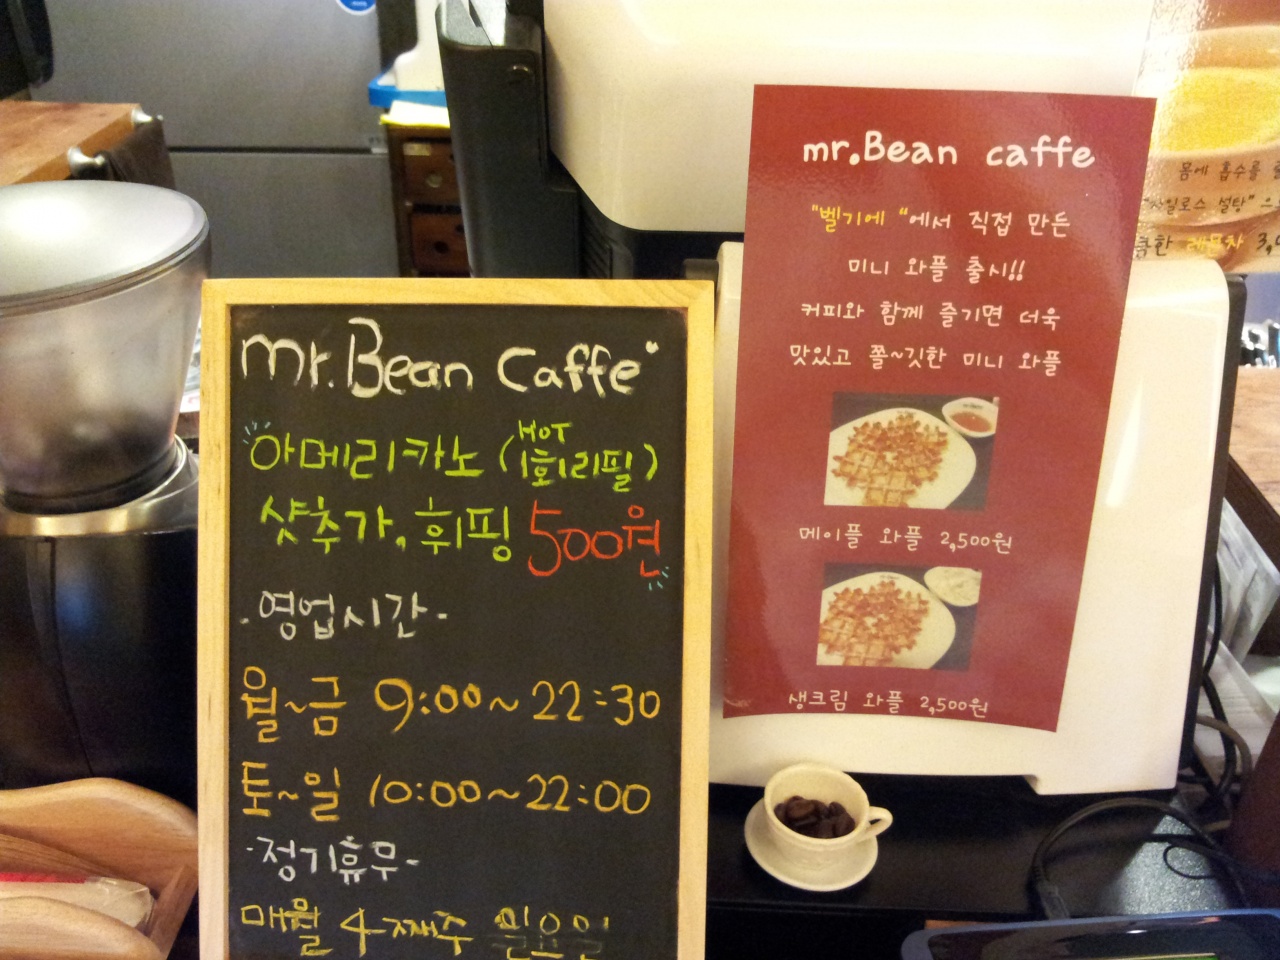 mr.Bean caffe
아메리카노 (HOT 1회리필)
샷추가, 휘핑 500원
-영업시간-
월~금 9:00~22:30
토~일 10:00~22:00
-정기휴무-
매월 4째주 일요일
mr.Bean caffe
"벨기에 "에서 직접 만든
미니 와플 출시!!
커피와 함께 즐기면 더욱
맛있고 쫄~깃한 미니 와플
메이플 와플 2,500원
생크림 와플 2,500원
몸에 흡수를
자일로스 설탕"
레몬차